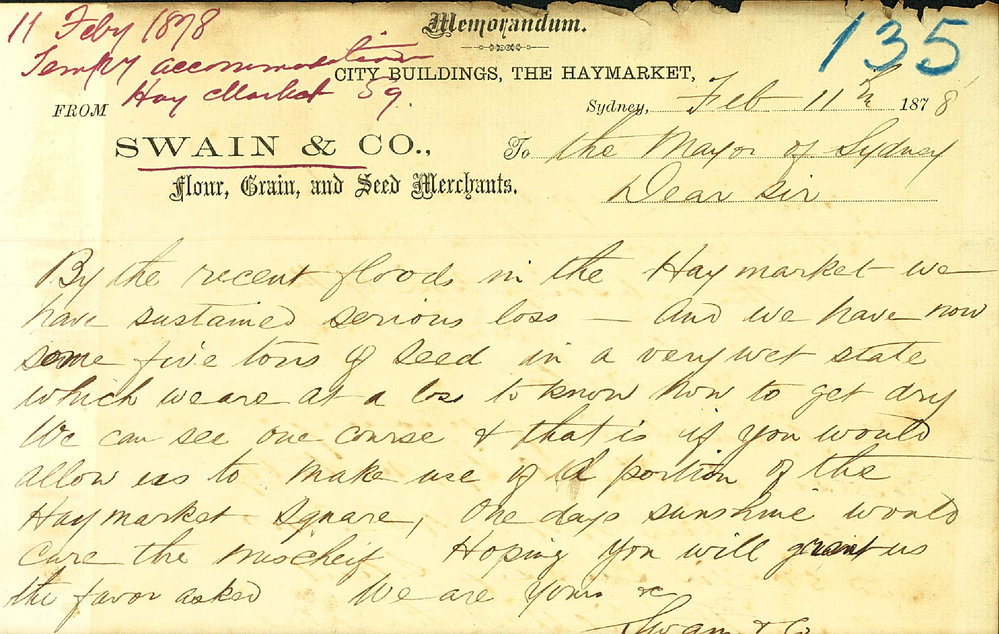 11 Feby 1878
Tempy accommodation
Hay Market Sq.
Memorandum.
135
CITY BUILDINGS, THE HAYMARKET,
FROM
Sydney, Feb 11th 1878
SWAIN & CO.,
To the Mayor of Sydney
Flour, Grain, and Seed Merchants.
Dear Sir
By the recent floods in the Haymarket we
have sustained serious loss — and we have now
some five tons of seed in a very wet state
which we are at a loss to know how to get dry
We can see one course & that is if you would
allow us to make use of a portion of the
Haymarket Square, One days sunshine would
cure the mischeif Hoping you will grant us
the favor asked We are yours &c
Swain & Co